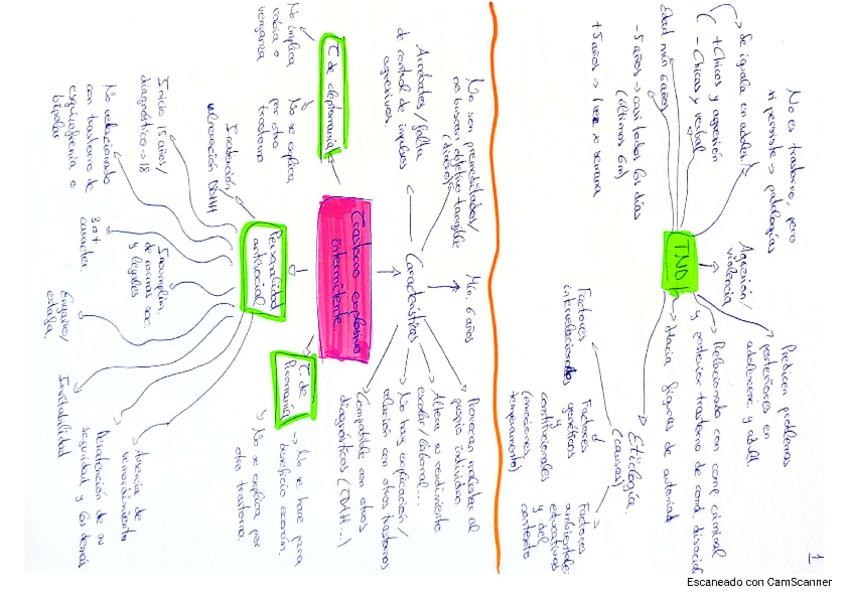 1
No es trastorno, pero
si persiste → patologías
Agresión/
violencia
Predicen problemas
posteriores en
adolescenc. y adult.
Se iguala en adolesc.
+ Chicos y agresión
- Chicas y verbal
Edad mín 6 años
- 5 años → casi todos los días
(últimos 6m)
+ 5 años → 1 vez x semana
TND
Relacionado con comp. criminal
y posterior trastorno de cond. disocial
Hacia figuras de autoridad
Etiología
(causas)
Factores
interrelacionados
Factores
genéticos
y
constitucionales
(emociones,
temperamento)
Factores
ambientales
educativos
y del
contexto
No son premeditados/
no buscan objetivo tangible
(dinero)
Mín. 6 años
Arrebatos/falta
de control de impulsos
agresivos.
Características
Provocan malestar al
propio individuo
Altera su rendimiento
escolar/laboral...
No hay explicación/
relación con otros trastornos
Compatible con otros
diagnósticos (TDAH...)
Trastorno explosivo
intermitente
T. de cleptomanía
No implica
rabia o
venganza
No se explica
por otro
trastorno
T. de
Piromanía
No se hace para
beneficio económ.
No se explica por
otro trastorno.
Personalidad
antisocial
Inicio 15 años/
diagnóstico → 18
No relacionado
con trastorno de
esquizofrenia o
bipolar
3 o +
caracter.
Incumplim.
de normas soc.
y legales
Engaños/
estafa.
Irritabilidad
Desatención de su
seguridad y los demás
Ausencia de
remordimiento
Escaneado con CamScanner